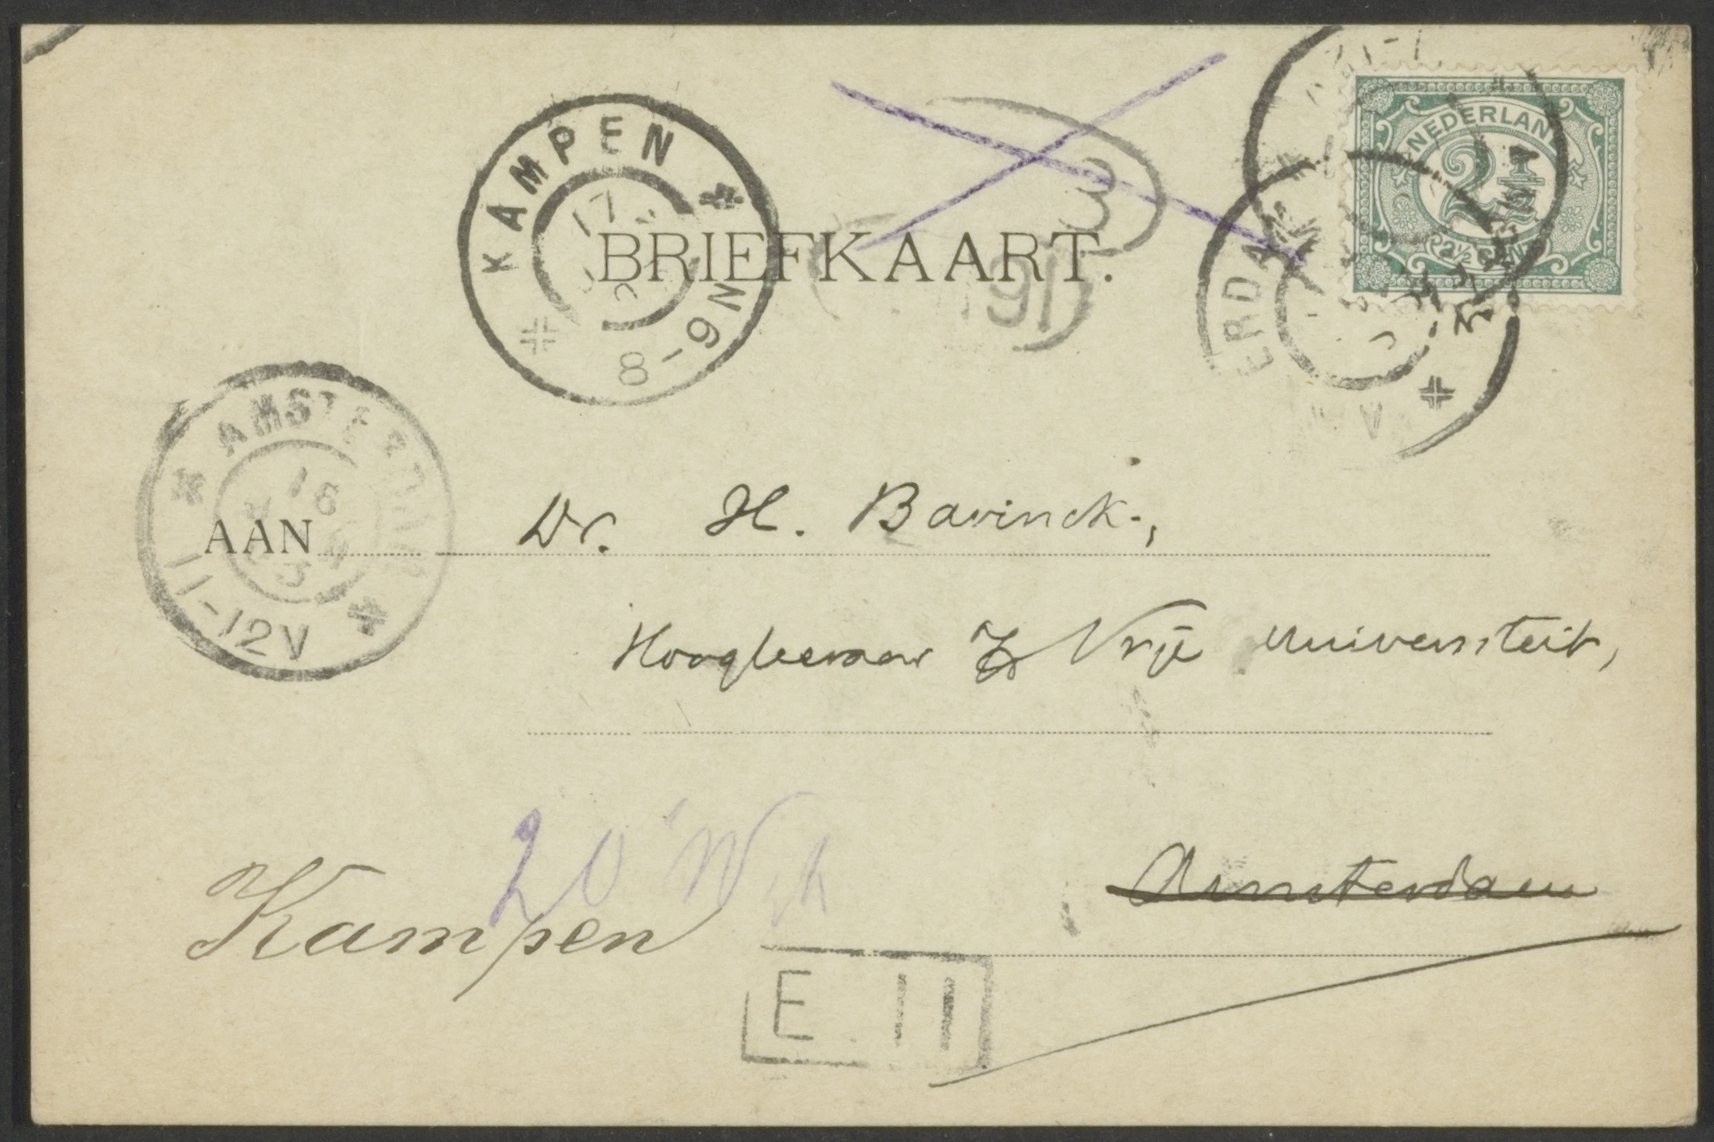 KAMPEN
17
8-9N
3
191
NEDERLAND
2½
2½ CENT
ERDAM
BRIEFKAART.
AMSTERDAM
16
11-12V
AAN Dr. H. Bavinck.,
Hoogleeraar Vrije Universiteit,
20 W
Amsterdam
Kampen
E 11